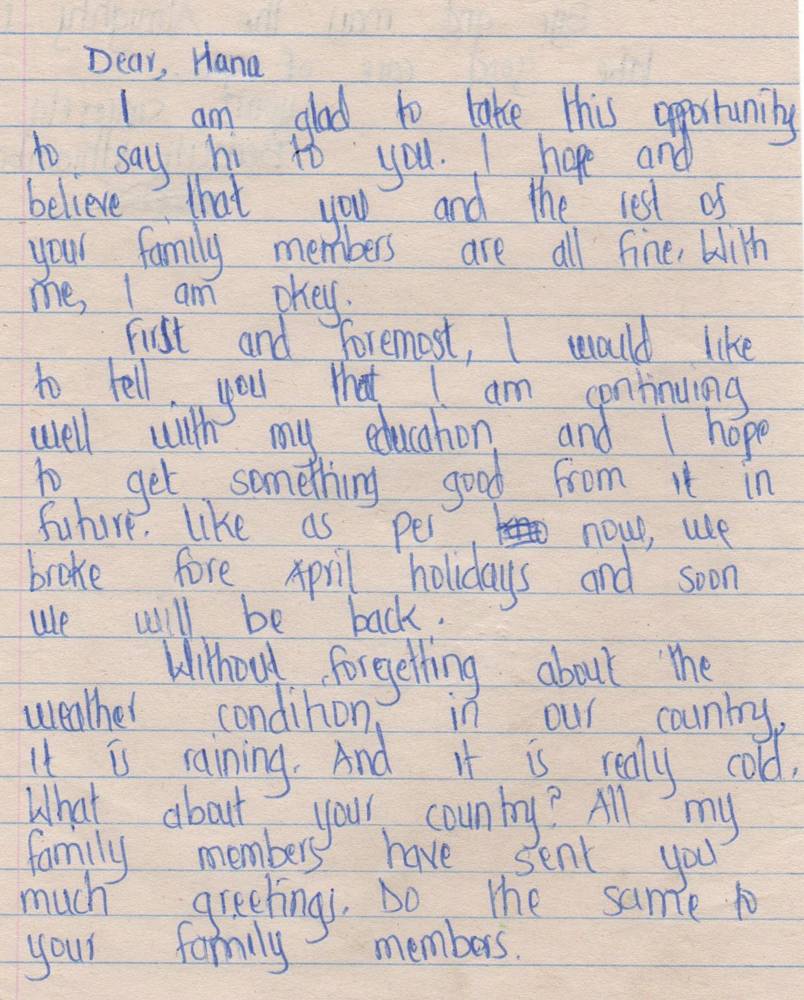 Dear, Hana
I am glad to take this opportunity
to say hi to you. I hope and
believe that you and the rest of
your family members are all fine. With
me, I am okey.
First and foremost, I would like
to tell you that I am continuing
well with my education and I hope
to get something good from it in
future. Like as per now, we
broke fore April holidays and soon
we will be back.
Without foregetting about the
weather condition in our country,
it is raining. And it is realy cold.
What about your country? All my
family members have sent you
much greetings. Do the same to
your family members.